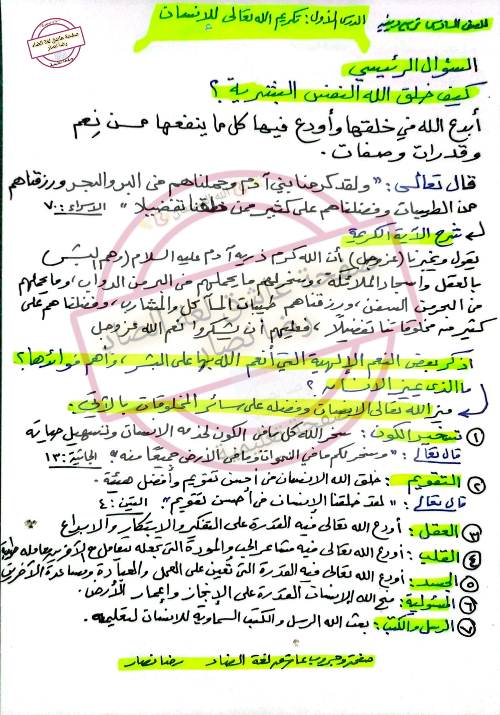 للصف السادس تربية دينية
الدرس الأول: تكريم الله تعالى للإنسان
السؤال الرئيسي
كيف خلق الله النفس البشرية؟
أبدع الله في خلقتها وأودع فيها كل ما ينفعها من نعم
وقدرات وصفات.
قال تعالى: "ولقد كرمنا بني آدم وحملناهم في البر والبحر ورزقناهم
من الطيبات وفضلناهم على كثير ممن خلقنا تفضيلا" الإسراء: ٧٠
شرح الآية الكريمة
يقول ويخبرنا (عز وجل) أن الله كرم ذرية آدم عليه السلام (وهم البشر)
بالعقل وإسجاد الملائكة، وسخر لهم ما يحملهم في البر من الدواب، وما يحملهم
في البحر من السفن، ورزقناهم طيبات المأكل والمشارب، وفضلناهم على
كثير من مخلوقاتنا تفضيلا، فعليهم أن يشكروا نعم الله عز وجل
اذكر بعض النعم الإلهية التي أنعم الله بها على البشر، وأهم فوائدها؟
ما الذي يميز الإنسان؟
ميز الله تعالى الإنسان وفضله على سائر المخلوقات بالآتي:
١ تسخير الكون: سخر الله كل ما في الكون لخدمة الإنسان ولتسهيل حياته
قال تعالى: "وسخر لكم ما في السموات وما في الأرض جميعا منه" الجاثية: ١٣
٢ التقويم: خلق الله الإنسان في أحسن تقويم وأفضل هيئة.
قال تعالى: "لقد خلقنا الإنسان في أحسن تقويم". التين: ٤
٣ العقل: أودع الله تعالى فيه القدرة على التفكير والابتكار والإبداع
٤ القلب: أودع الله تعالى فيه مشاعر الحب والمودة التي تجعله يتعامل مع الآخرين بمعاملة طيبة
٥ الجسد: أودع الله تعالى فيه القدرة التي تعين على العمل والعبادة ومساعدة الآخرين
٦ المسئولية: منح الله الإنسان القدرة على الإنجاز وإعمار الأرض.
٧ الرسل والكتب: بعث الله الرسل والكتب السماوية للإنسان لتعليمه.
صفحة وجروب عاشق لغة الضاد رضا نصار